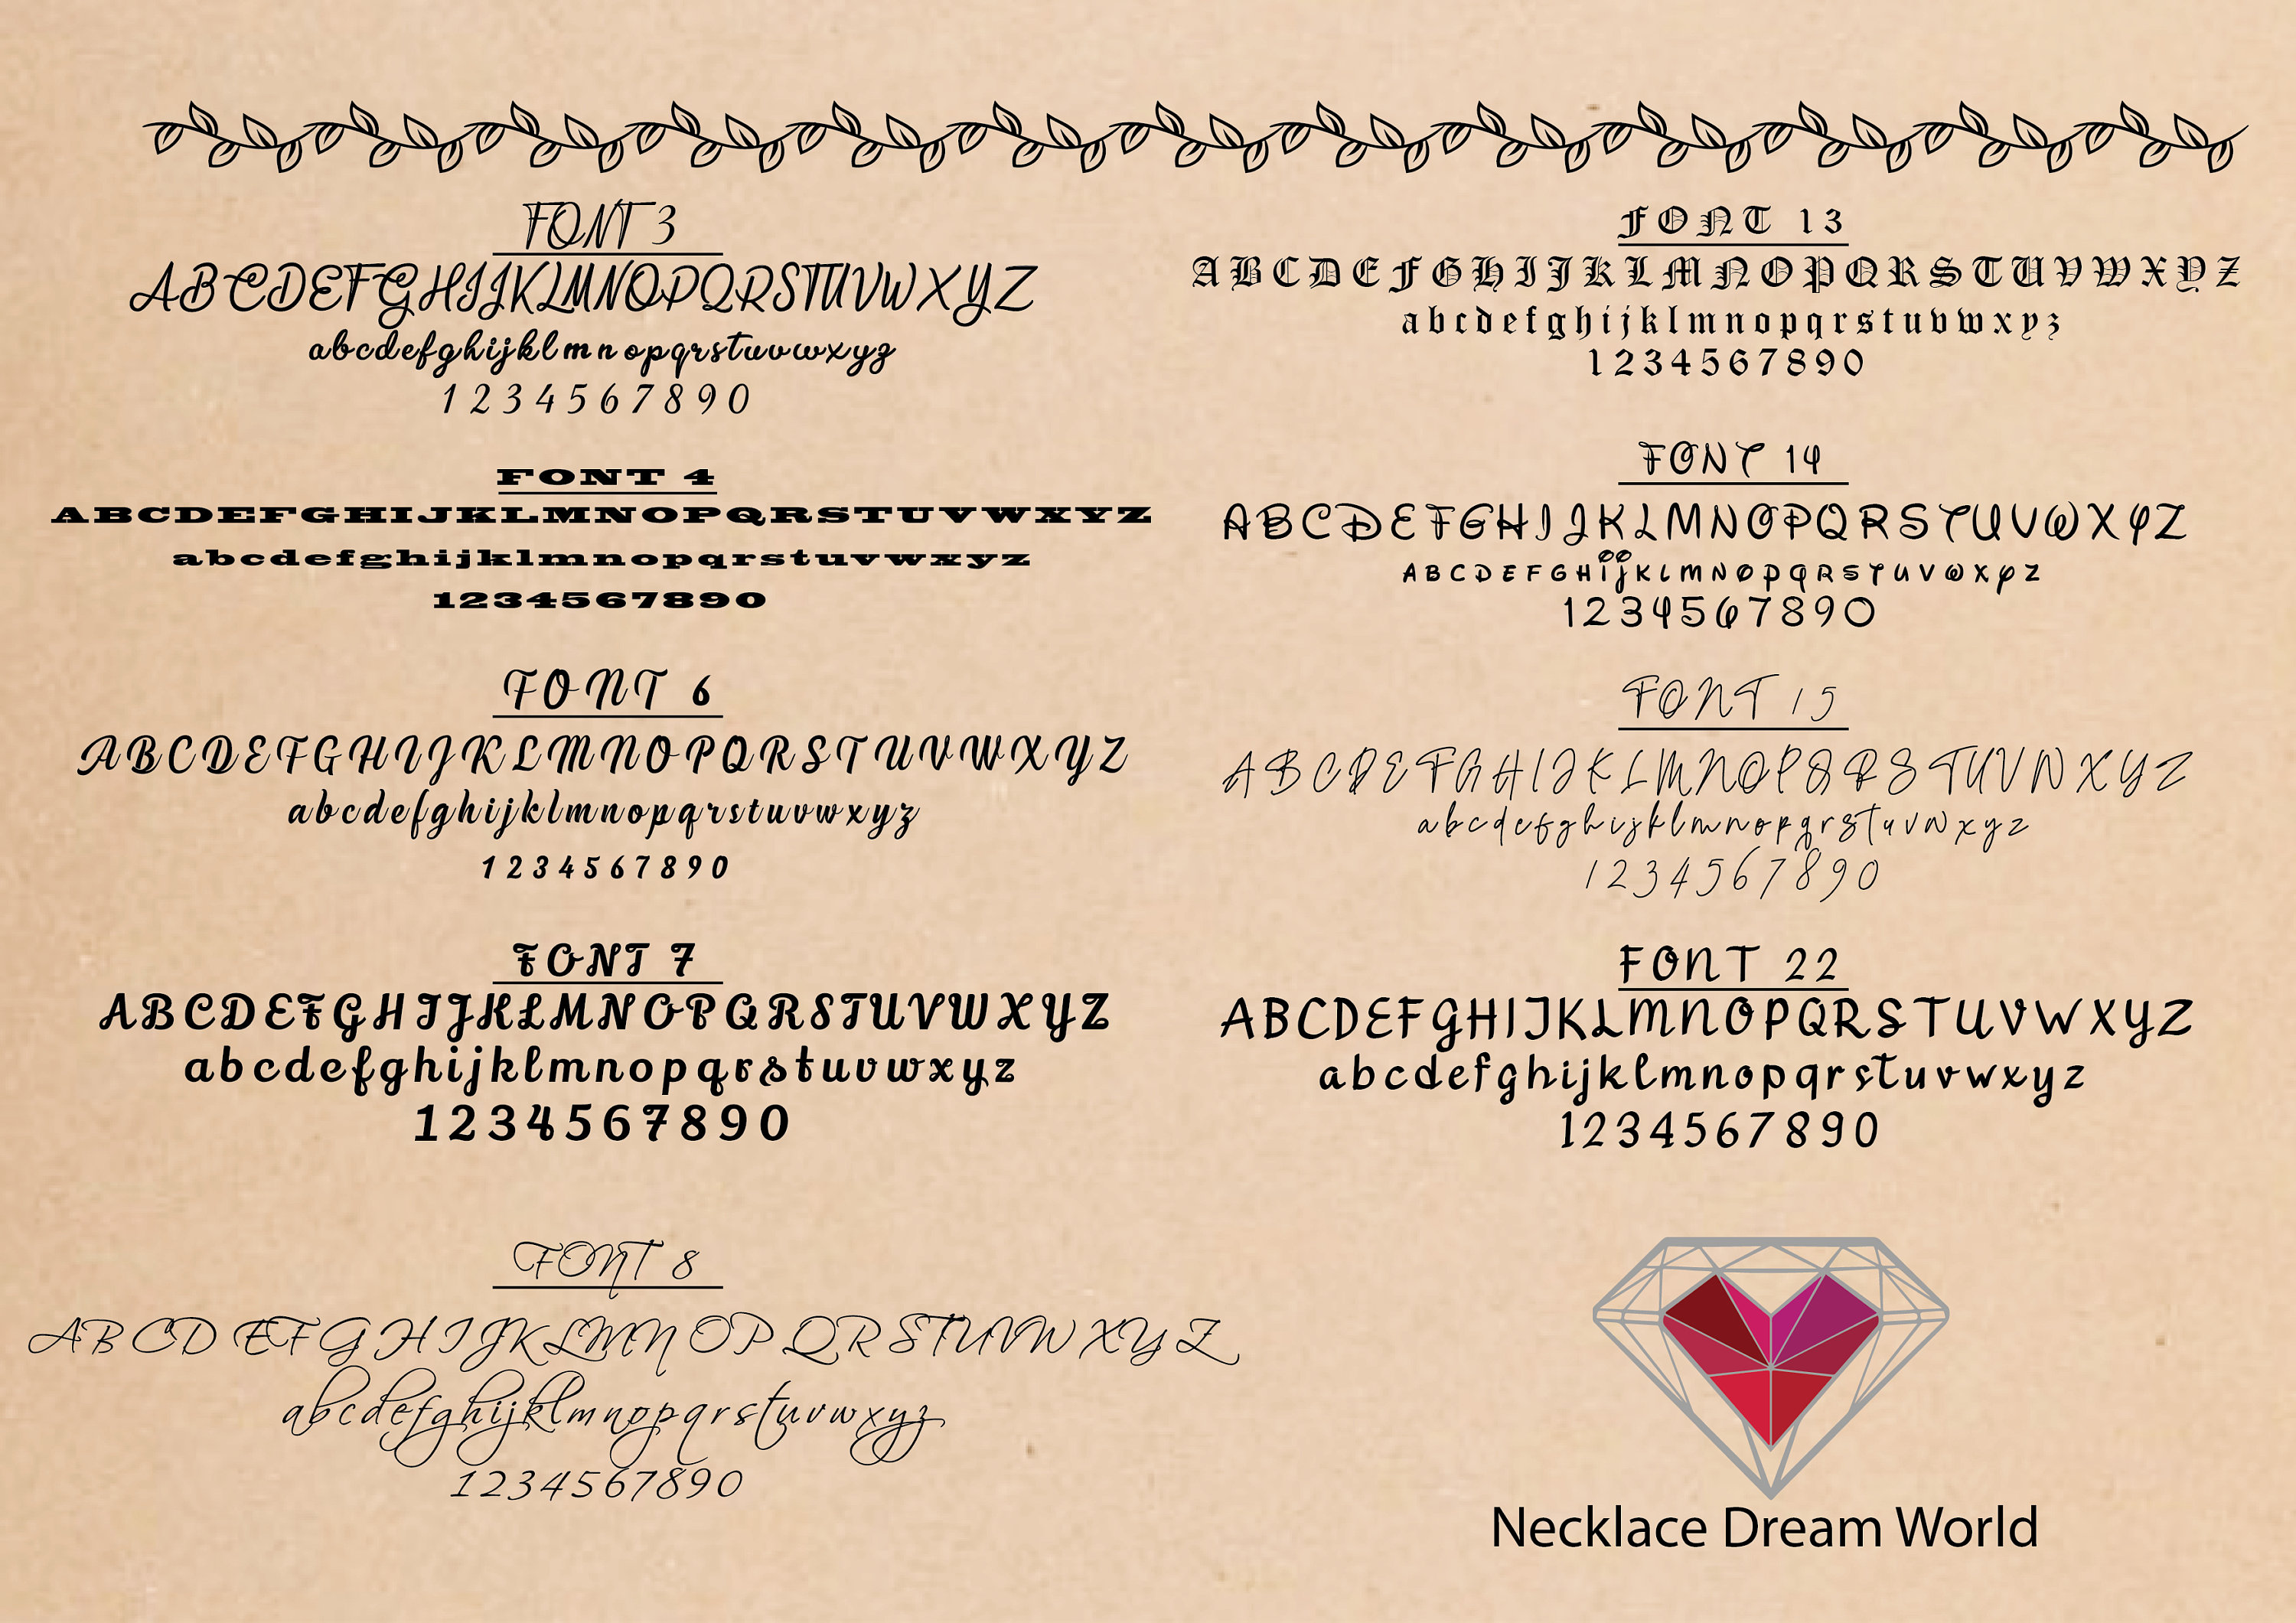 FONT 3
ABCDEFGHIJKLMNOPQRSTUVWXYZ
abcdefghijklmnopqrstuvwxyz
1234567890
FONT 4
ABCDEFGHIJKLMNOPQRSTUVWXYZ
abcdefghijklmnopqrstuvwxyz
1234567890
FONT 6
ABCDEFGHIJKLMNOPQRSTUVWXYZ
abcdefghijklmnopqrstuvwxyz
1234567890
FONT 7
ABCDEFGHIJKLMNOPQRSTUVWXYZ
abcdefghijklmnopqrstuvwxyz
1234567890
FONT 8
ABCDEFGHIJKLMNOPQRSTUVWXYZ
abcdefghijklmnopqrstuvwxyz
1234567890
FONT 13
ABCDEFGHIJKLMNOPQRSTUVWXYZ
abcdefghijklmnopqrstuvwxyz
1234567890
FONT 14
ABCDEFGHIJKLMNOPQRSTUVWXYZ
ABCDEFGHijKLMNOPQRSTUVWXYZ
1234567890
FONT 15
ABCDEFGHIJKLMNOPQRSTUVWXYZ
abcdefghijklmnopqrstuvwxyz
1234567890
FONT 22
ABCDEFGHIJKLMNOPQRSTUVWXYZ
abcdefghijklmnopqrstuvwxyz
1234567890
Necklace Dream World